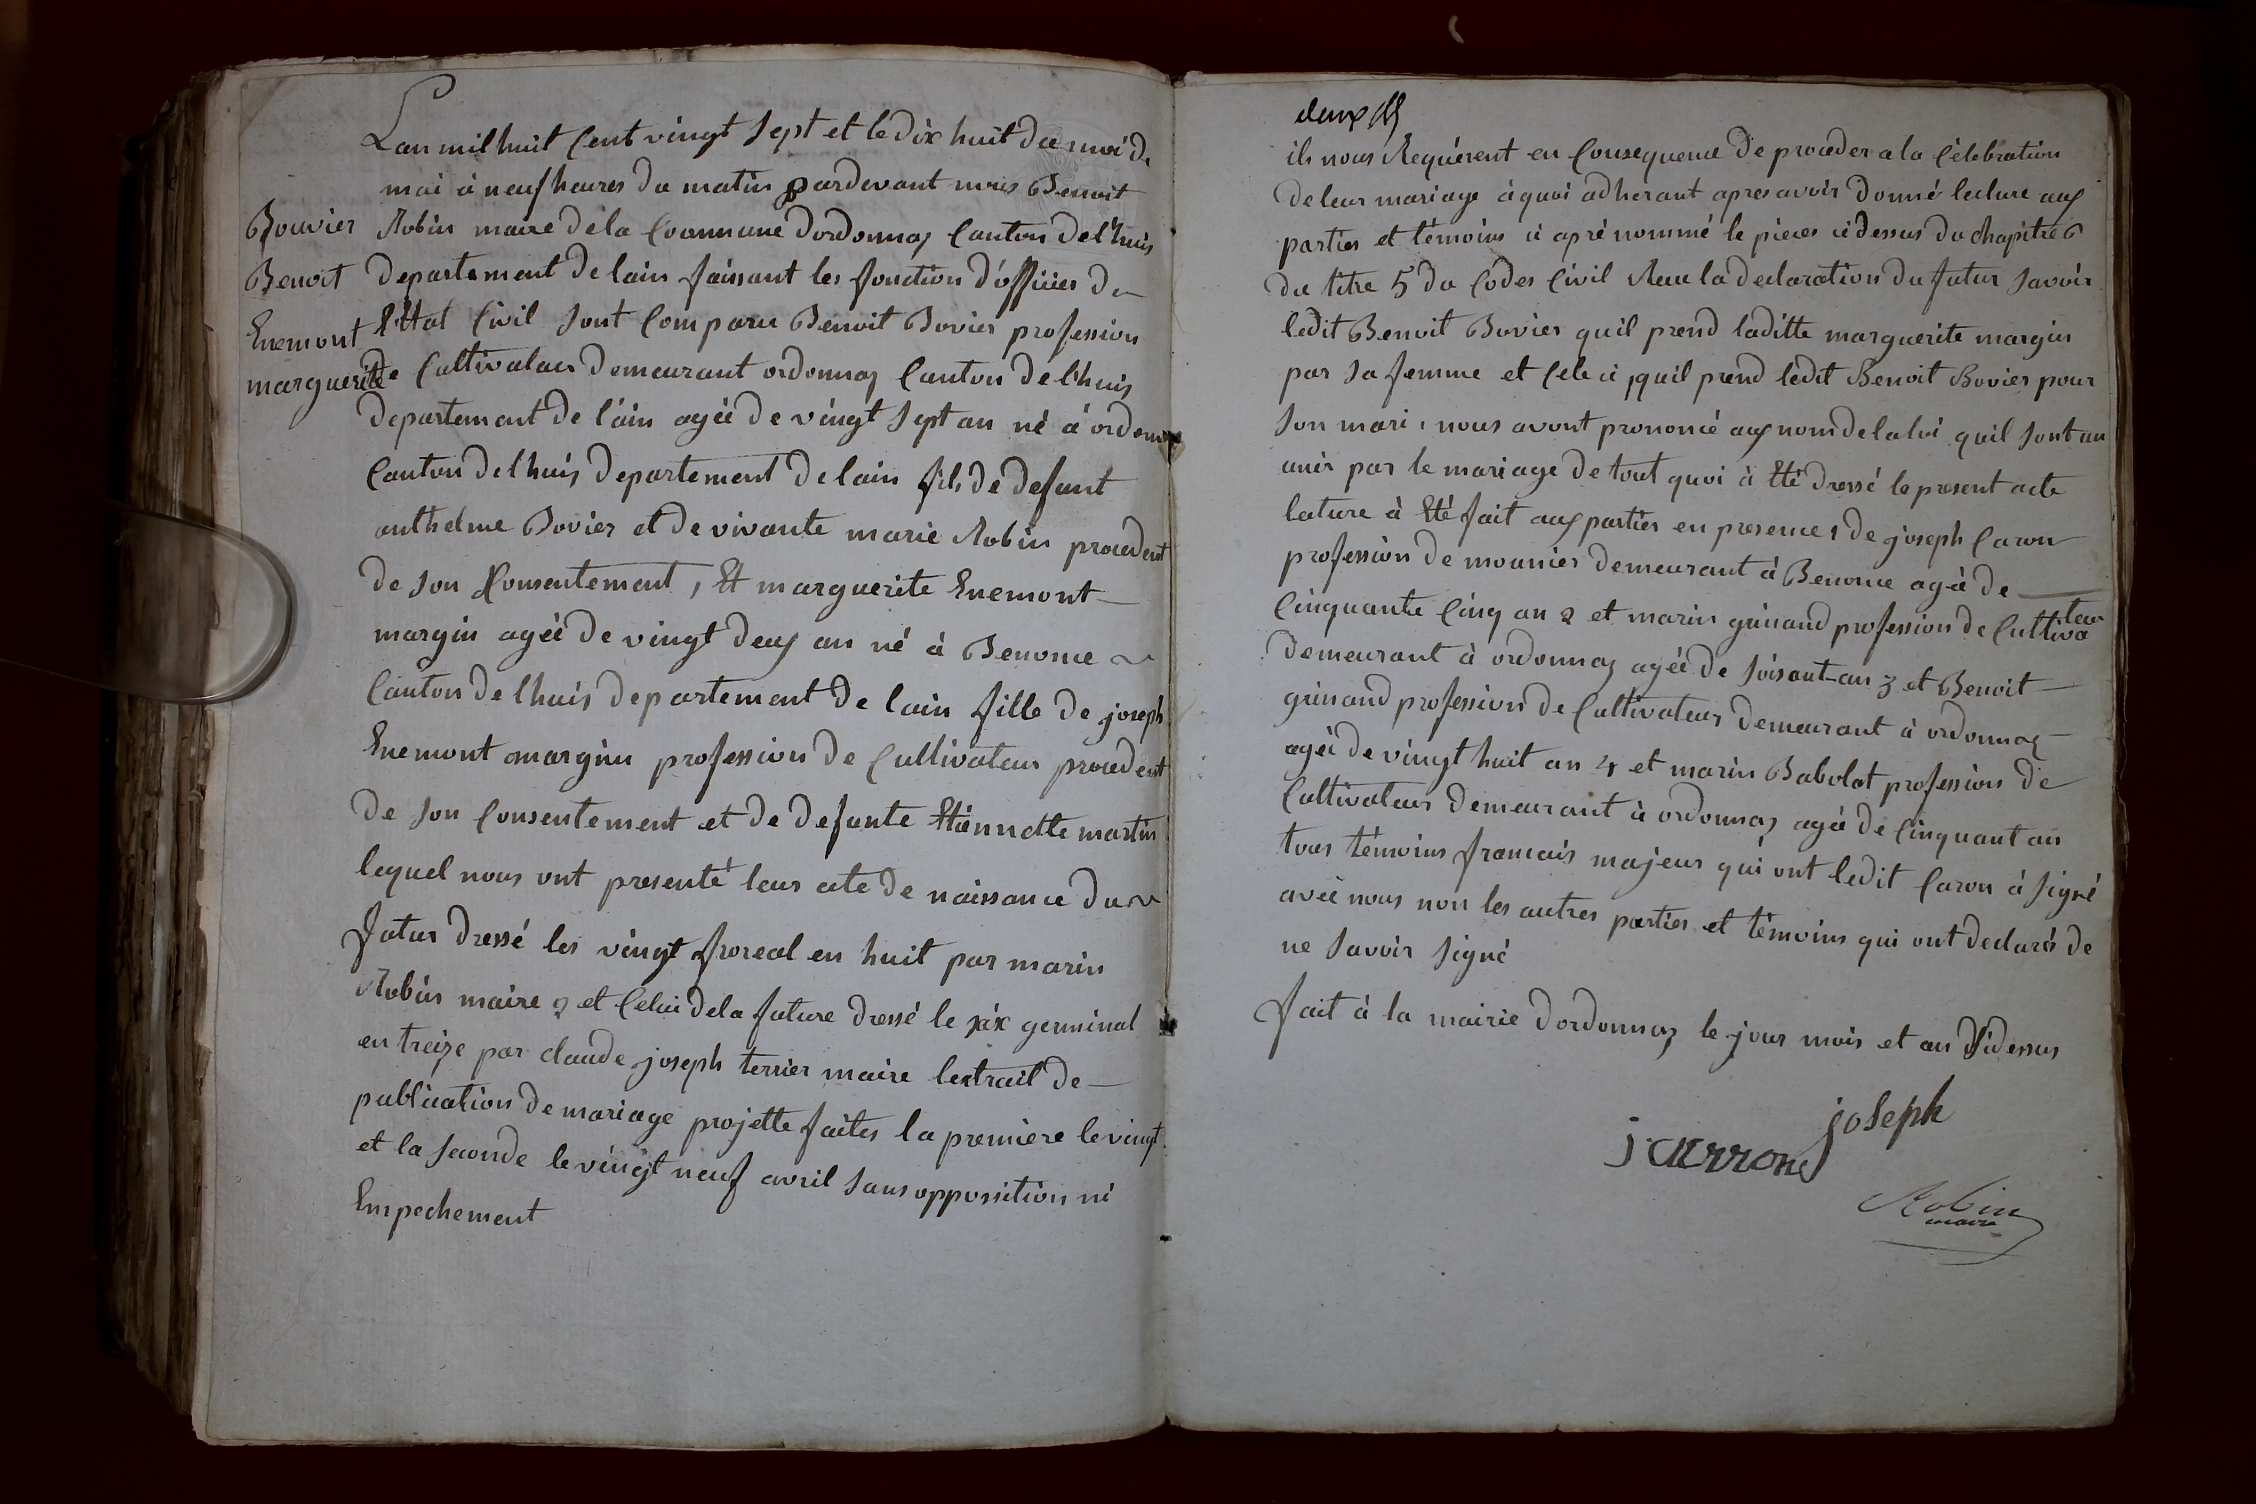 Lan mil huit Cent vingt sept et le dix huit du moi de
mai à neuf heures du matin pardevant nous Benoit
Bouvier
Robin maire de la Commune Dordonnaz Canton de l'huis
Benoit
departement de lain faissant les fonction d'officier de
Enemont
l'Etat Civil sont Comparu Benoit Bovier profession
marguerite
de Cultivateur demeurant ordonnaz Canton de l'huis
departement de l'ain agée de vingt sept an né à ordonnaz
Canton de lhuis departement de lain fils de defunt
anthelme Bovier et de vivante marie Robin procedent
de son Consentement, Et marguerite Enemont
margin agée de vingt deux an né à Benonce
Canton de lhuis departement de lain fille de joseph
Enemont margin profession de Cultivateur procedent
de son Consentement et de defunte Etiennette martin
lequel nous ont presenté leur acte de naissance du
futur dressé les vingt floreal en huit par marin
Robin maire 2 et Celui dela future dressé le six germinal
en treize par claude joseph terrier maire lextrait de
publication de mariage projette faites la premiere le vingt
et la seconde le vingt neuf avril sans oppossition ni
Empechement
deux
ils nous Requèrent en Consequence de proceder a la Célebration
de leur mariage à quoi adherant apres avoir donné lecture aux
parties et témoins ci apré nommé le pieces ci dessus du chapitre 6
du titre 5 du Codes Civil Recu la declaration du futur savoir
ledit Benoit Bovier quil prend laditte marguerite margin
par sa femme et Cele ci, quil prend ledit Benoit Bovier pour
son mari, nous avont prononcé aux nom de la loi quil sont un
unir par le mariage de tout quoi à Eté dressé le present acte
lature à Eté fait aux parties en presence 1 de joseph Caron
profession de mounier demeurant à Benonce agée de
Cinquante Cinq an 2 et marin guinand profession de Cultivateur
demeurant à ordonnaz agée de soisant an 3 et Benoit
guinand profession de Cultivateur demeurant à ordonnaz
agée de vingt huit an 4 et marin Babolat profession de
Cultivateur demeurant à ordonnaz agée de Cinquant an
tous témoins francais majeur qui ont ledit Caron à signé
avec nous non les autres parties et témoins qui ont declarés de
ne savoir signé
fait à la mairie dordonnaz le jour mois et an Cidessus
joseph
j carron
Robin
maire